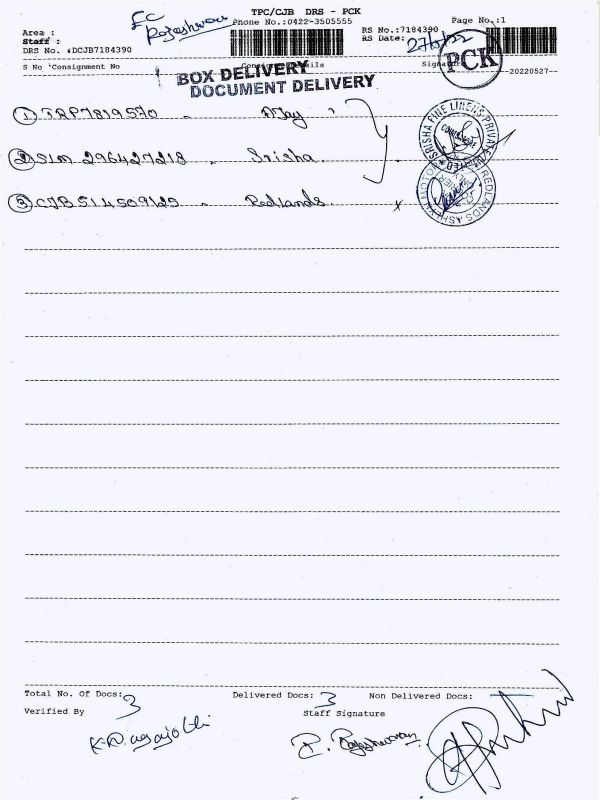 TPC/CJB DRS - PCK
Phone No.:0422-3505555
Page No.:1
FC
Rajeshwaran
Area :
Staff :
DRS No. :DCJB7184390
RS No.:7184390
RS Date:
27/5/22
PCK
S No Consignment No
--20220527--
BOX DELIVERY
DOCUMENT DELIVERY
① TRP7819570 - AJay
② SLM 296427218 - Srisha
③ CJB514509125 - Redlands.
SRISHA FINE LINERS PRIVATE
COIMBATORE
REDLANDS ASHLYN MOTO
Total No. Of Docs: 3
Delivered Docs: 3
Non Delivered Docs:
Verified By
Staff Signature
R. Rajeshwaran